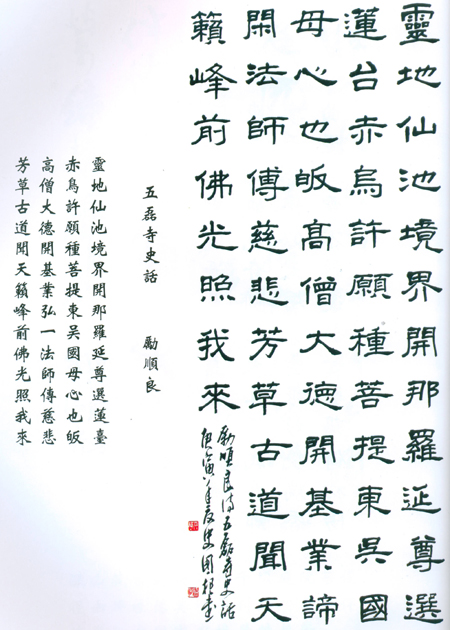 靈地仙池境界開那羅延尊選
蓮台赤烏許願種菩提東吳國
母心也皈高僧大德開基業諦
閑法師傳慈悲芳草古道聞天
籟峰前佛光照我來
勵順良詩五磊寺史話
庚寅年夏史國書
五磊寺史話 勵順良
靈地仙池境界開那羅延尊選蓮臺
赤烏許願種菩提東吳國母心也皈
高僧大德開基業弘一法師傳慈悲
芳草古道聞天籟峰前佛光照我來